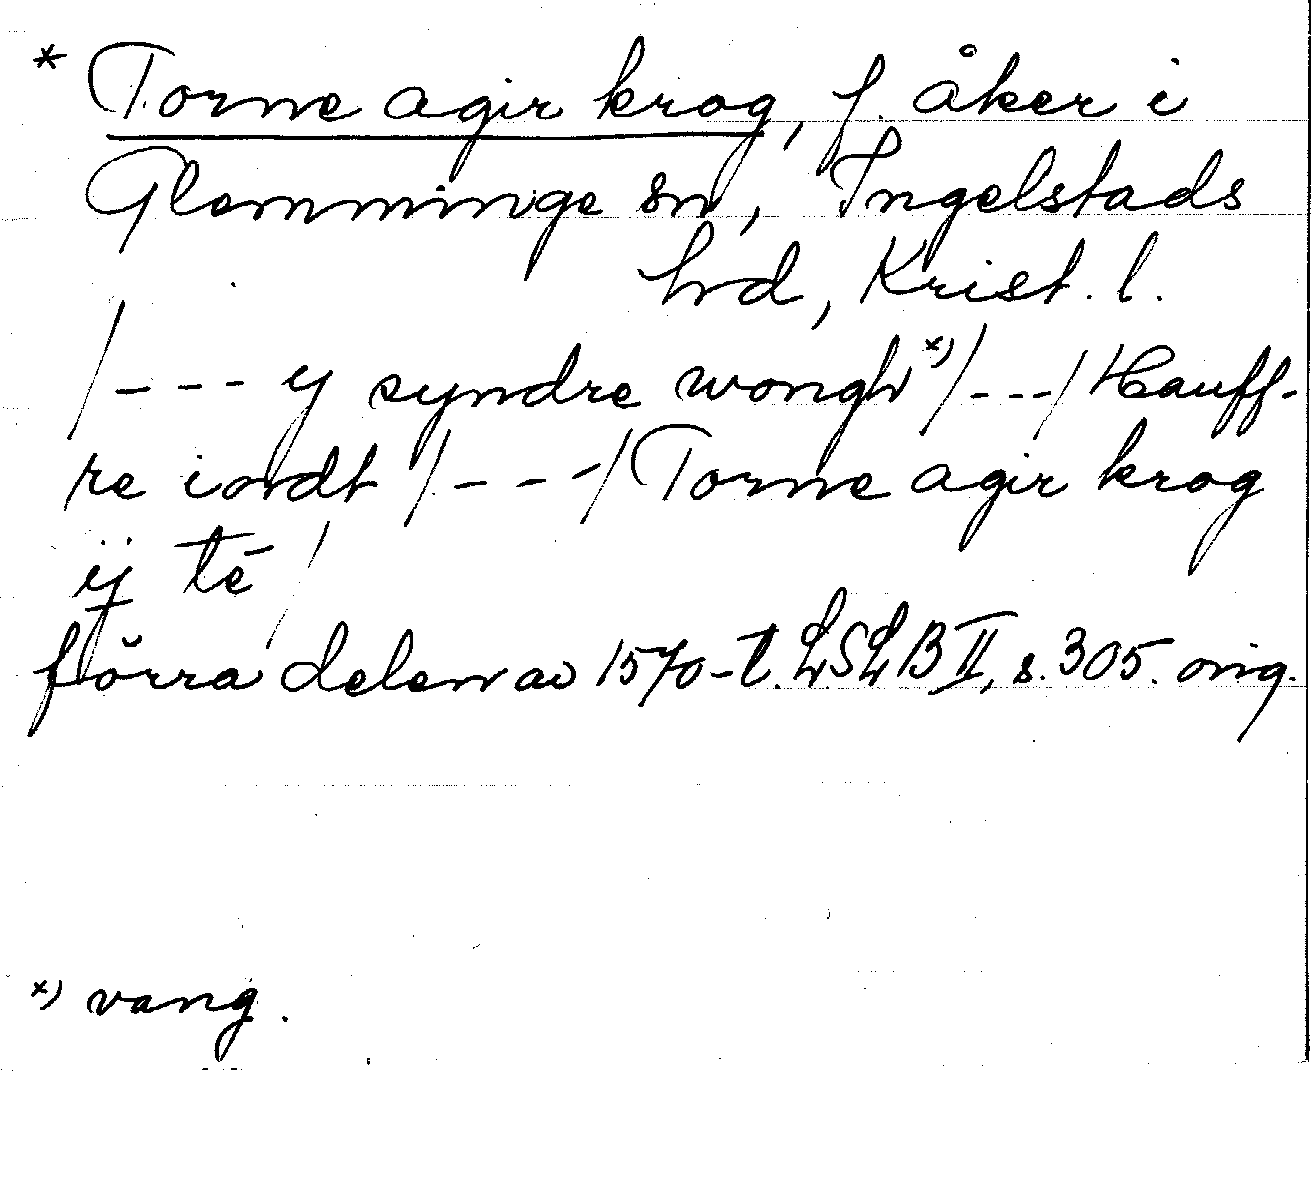 * Torne agir krog, f. åker i
Glemminge sn, Ingelstads
hd, Krist. l.
/--- y syndre wongh x) /---/ Hauff-
re iordt /---/ Torne agir krog
ÿ tē /
förra delen av 1570-t. LSLB II, s. 305. orig.
x) vang.